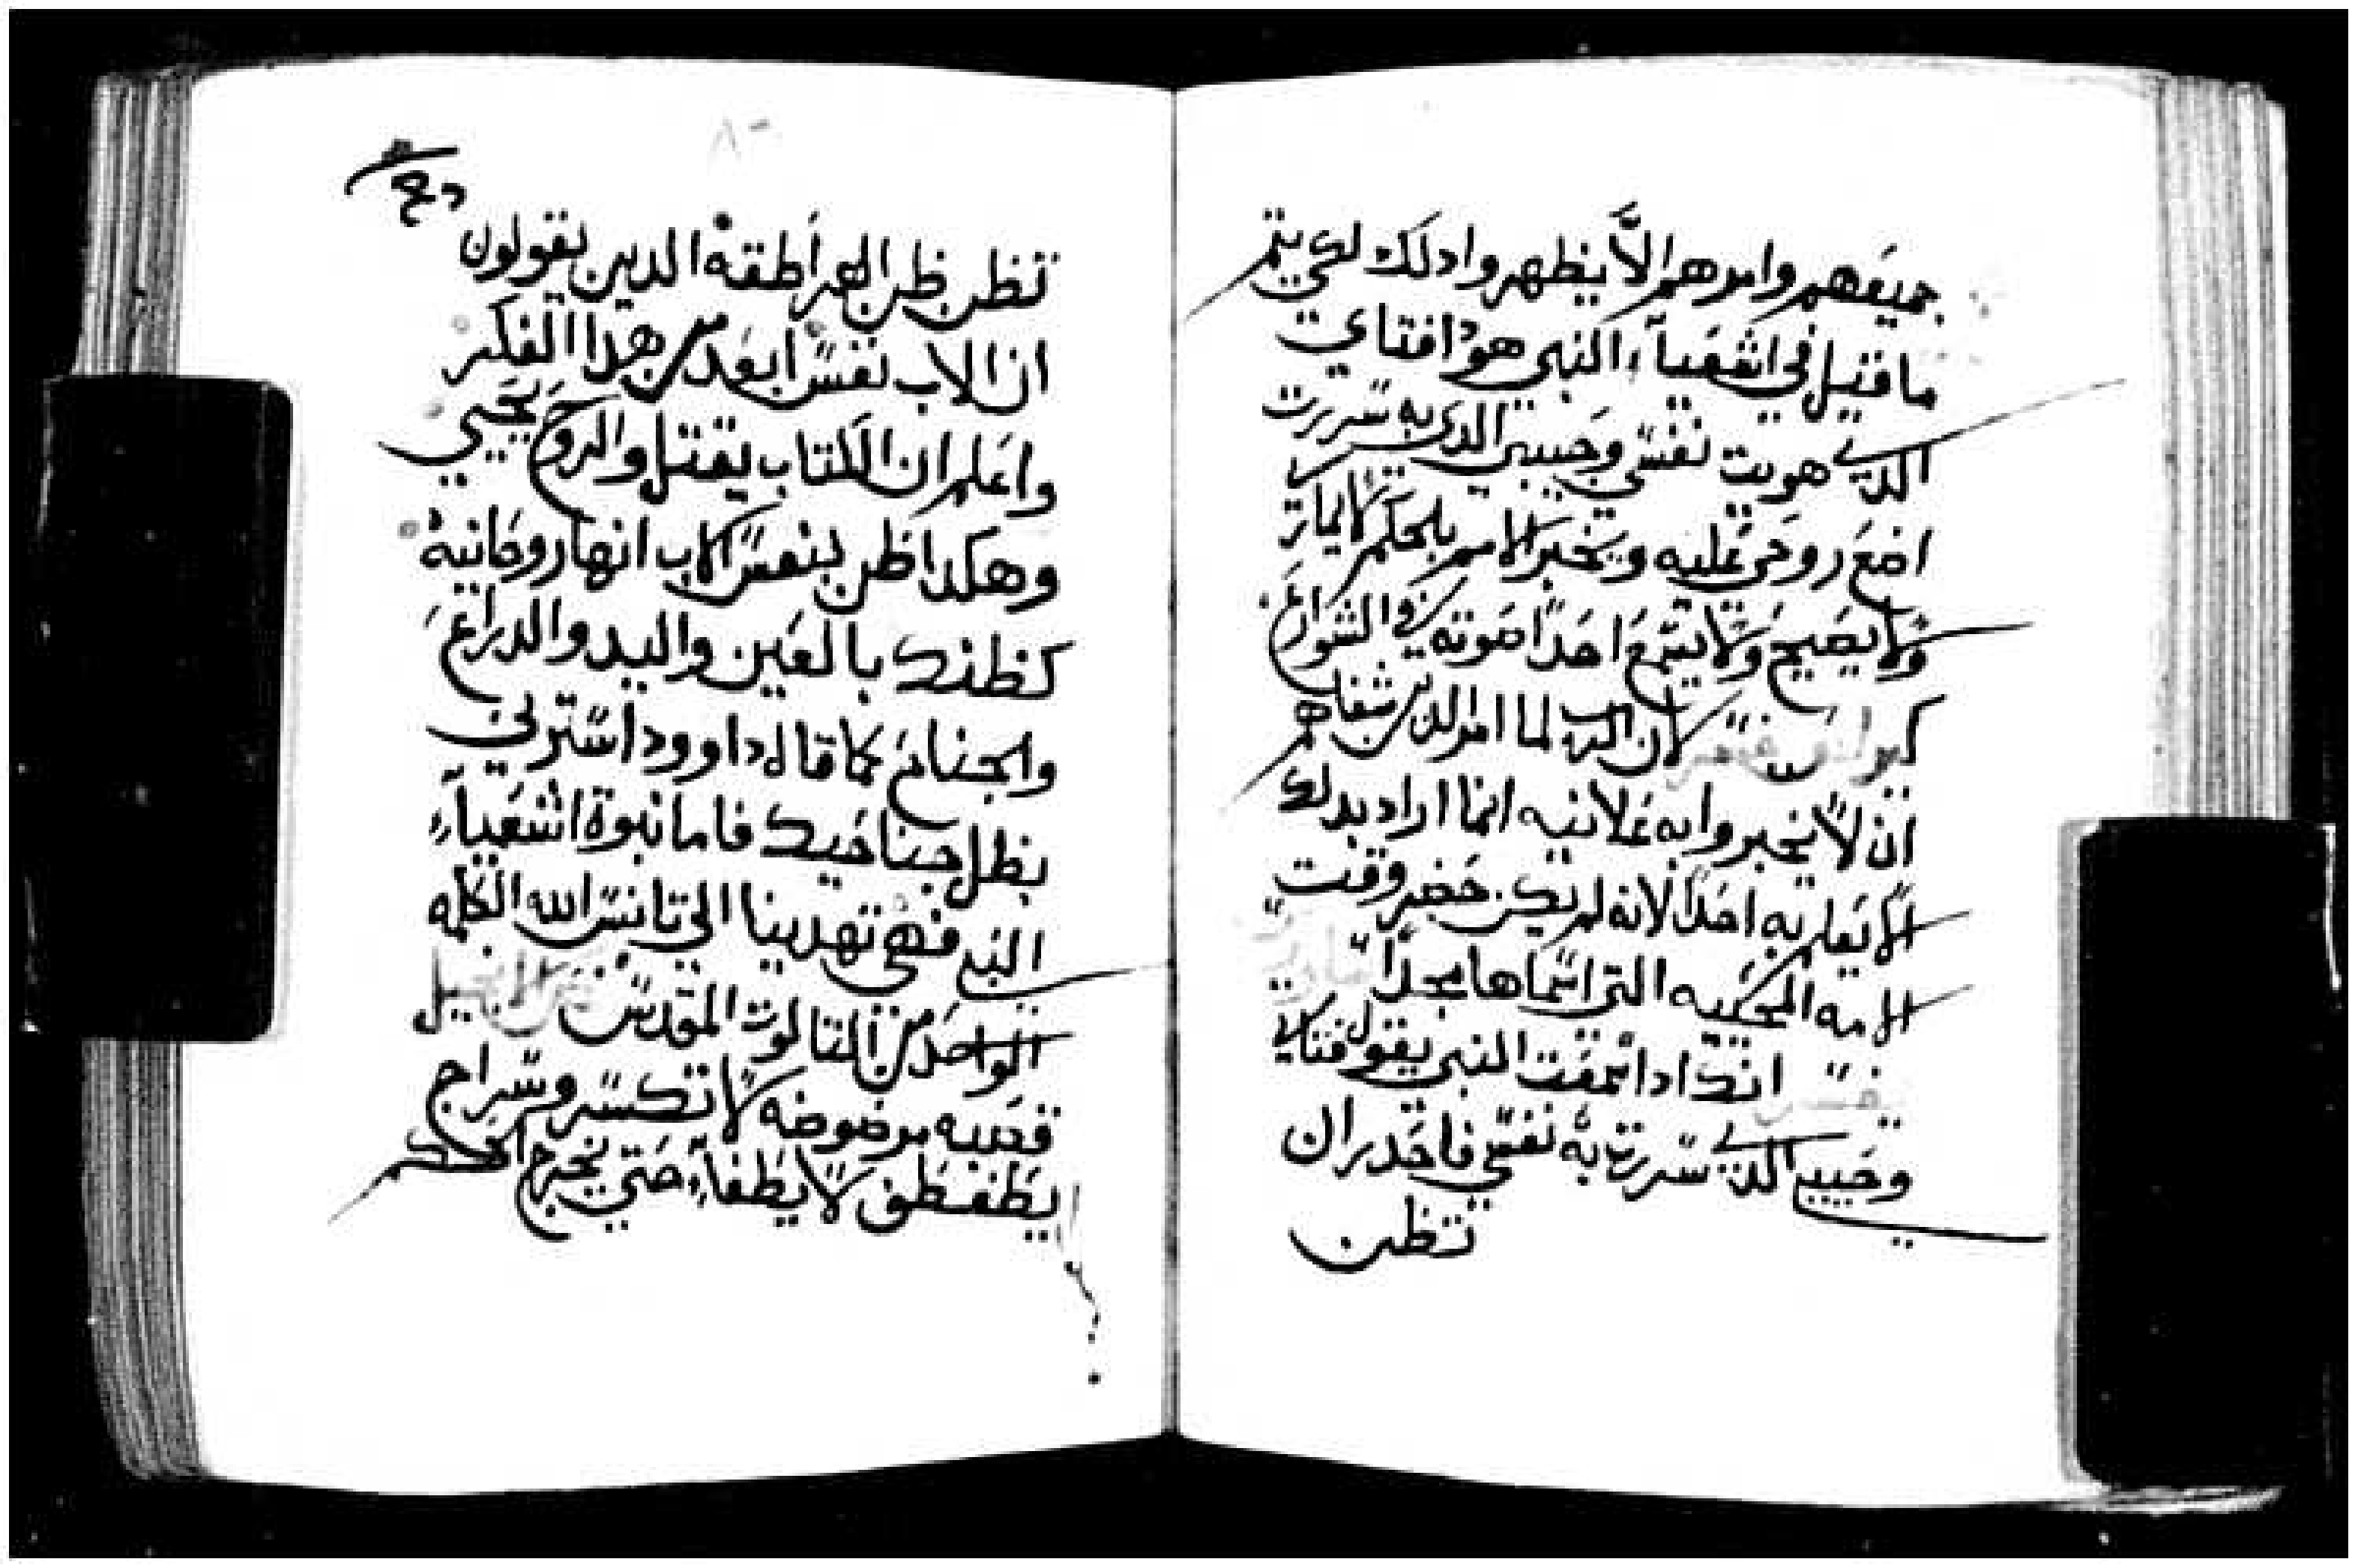 جميعهم وامرهم الَّا يظهروا دلك لكي يتم
ما قيل في اشعيآء النبي هودا فتاي
الدي هويت نفسي وحبيبي الدي به سررت
اضع روحي عليه ويخبر الامم بالحكم لا يمار
ولا يصيح ولا يسمع احدًا صوته في الشوارع
لان الرب لما امر الدين شفاهم
ان لا يخبروا به علانيه انما اراد بدلك
الا يعلم به احدًا لانه لم يكن حضر وقت
الامه المحبيه التي اسماها مجدًا
انك ادا سمعت النبي يقول فتاي
وحبيبي الدي سررت به نفسي فاحدر ان
تظن
تظن ظن الهراطقه الدين يقولون
ان الاب نفسًا ابعد من هدا الفكر
واعلم ان الكتاب يقتل والروح يحيي
وهكدا ظن بنفس الاب انها روحانية
كظنك بالعين واليد والدراع
والجناح كما قال داوود استرني
بظل جناحيك فاما نبوة اشعيآء
النبي فهي تهدينا الي تانس الله الكلمه
الواحد من التالوت المقدس
قصبه مرضوضه لا تكسر وسراج
يطفطف لا يطفآء حتي يخرج الحكم